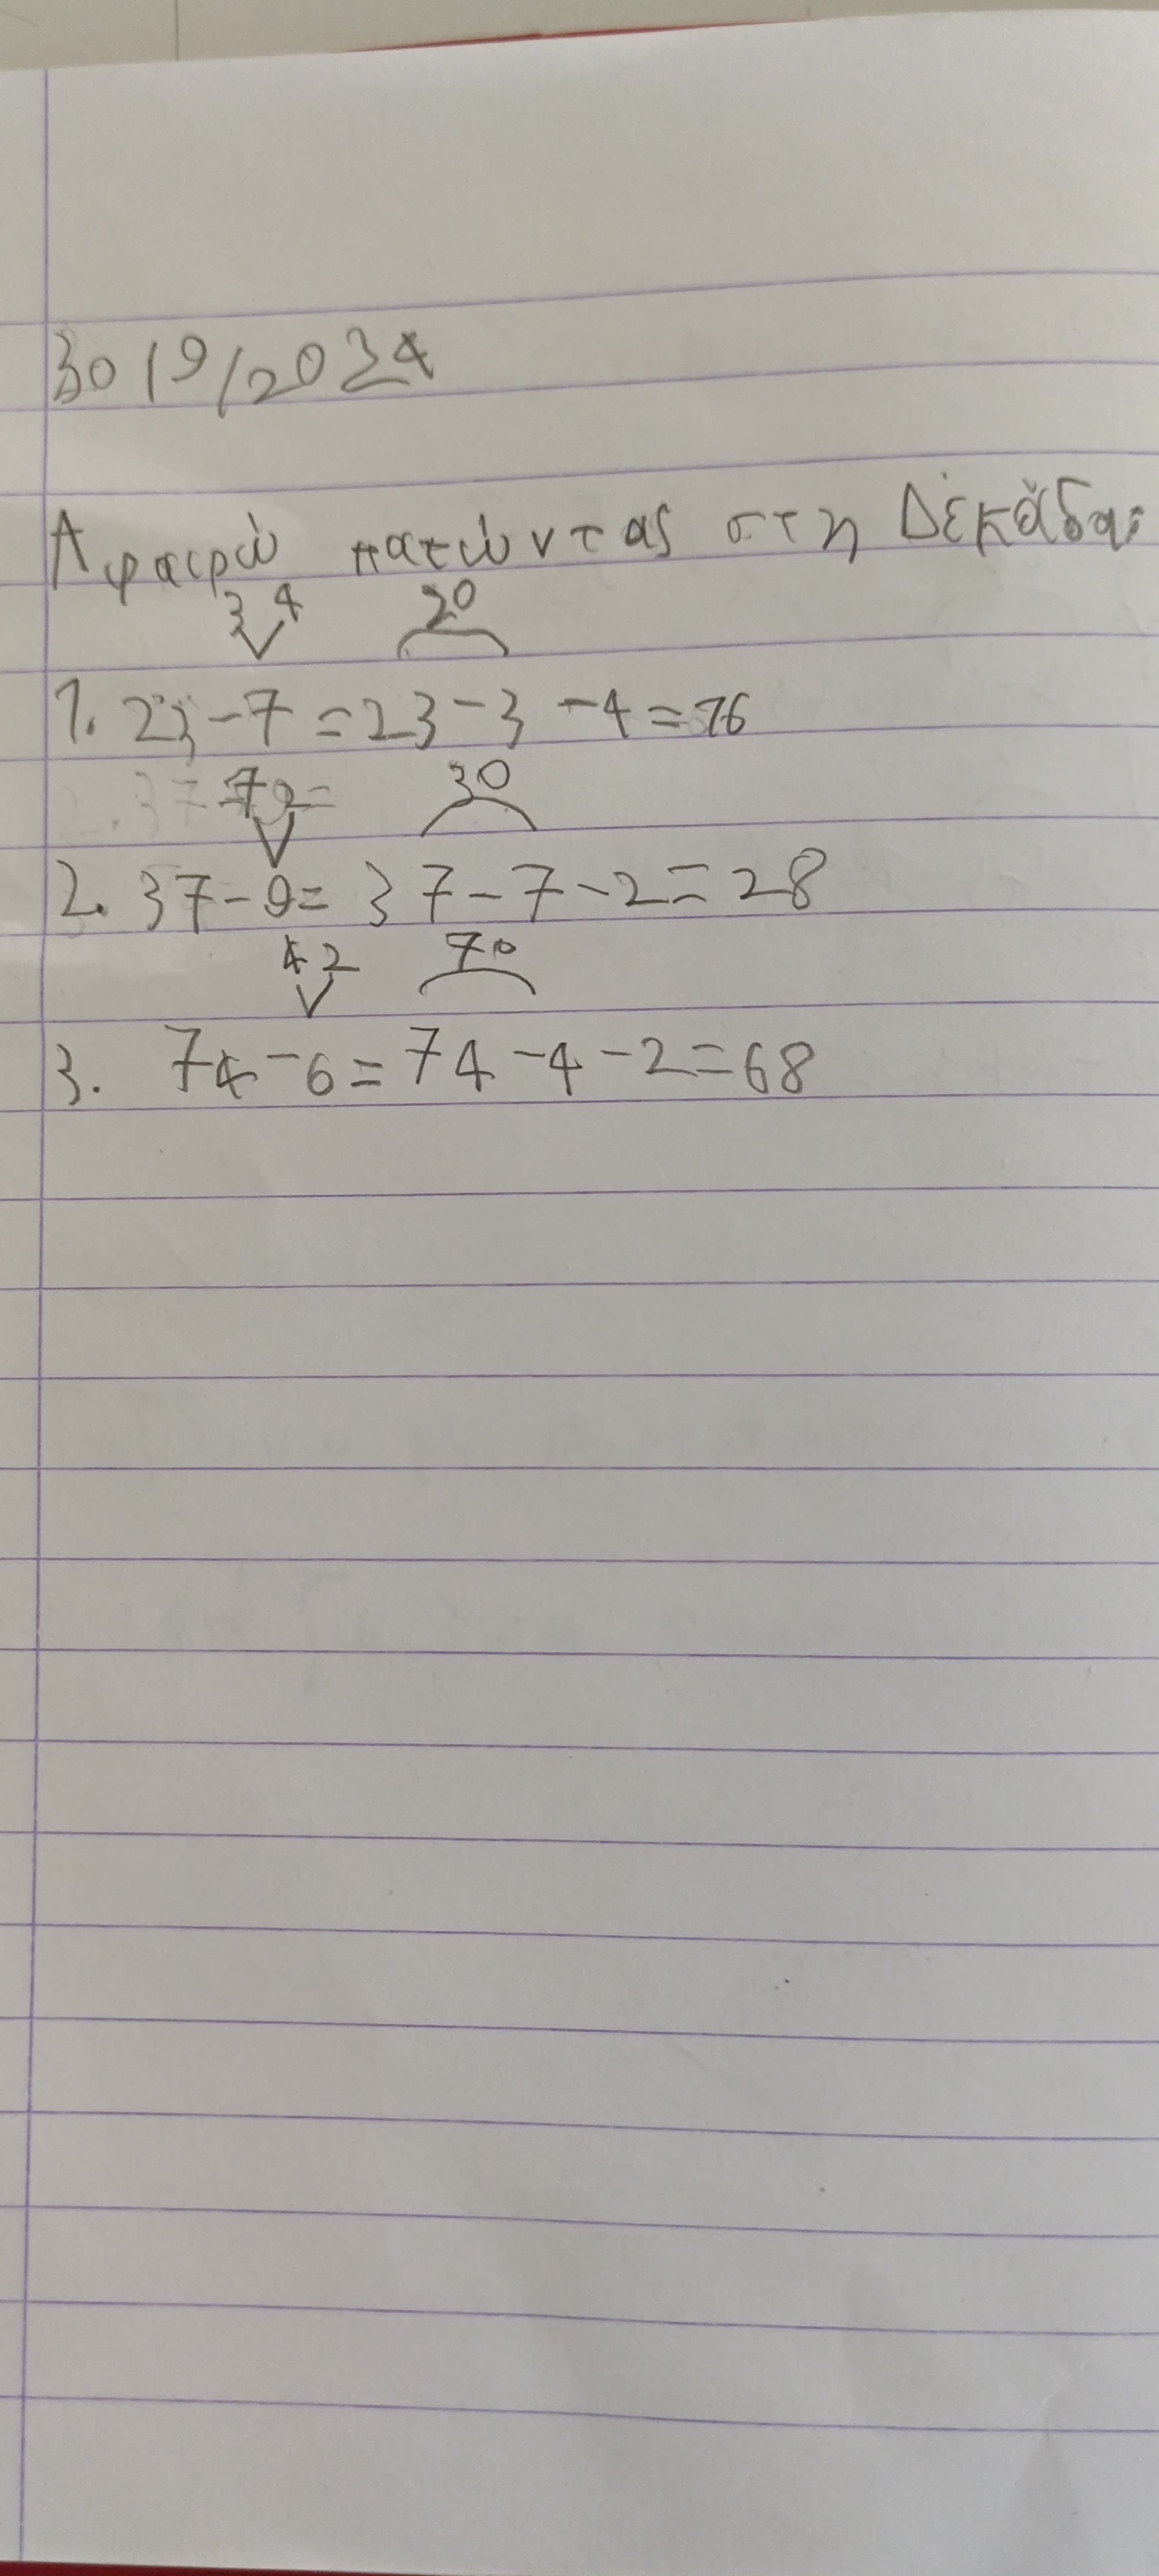 30/9/2024
Αφαιρώ πατώντας στη Δεκάδα:
3 4 20
1. 23-7=23-3-4=16
7 2 30
2. 37-9=37-7-2=28
4 2 70
3. 74-6=74-4-2=68